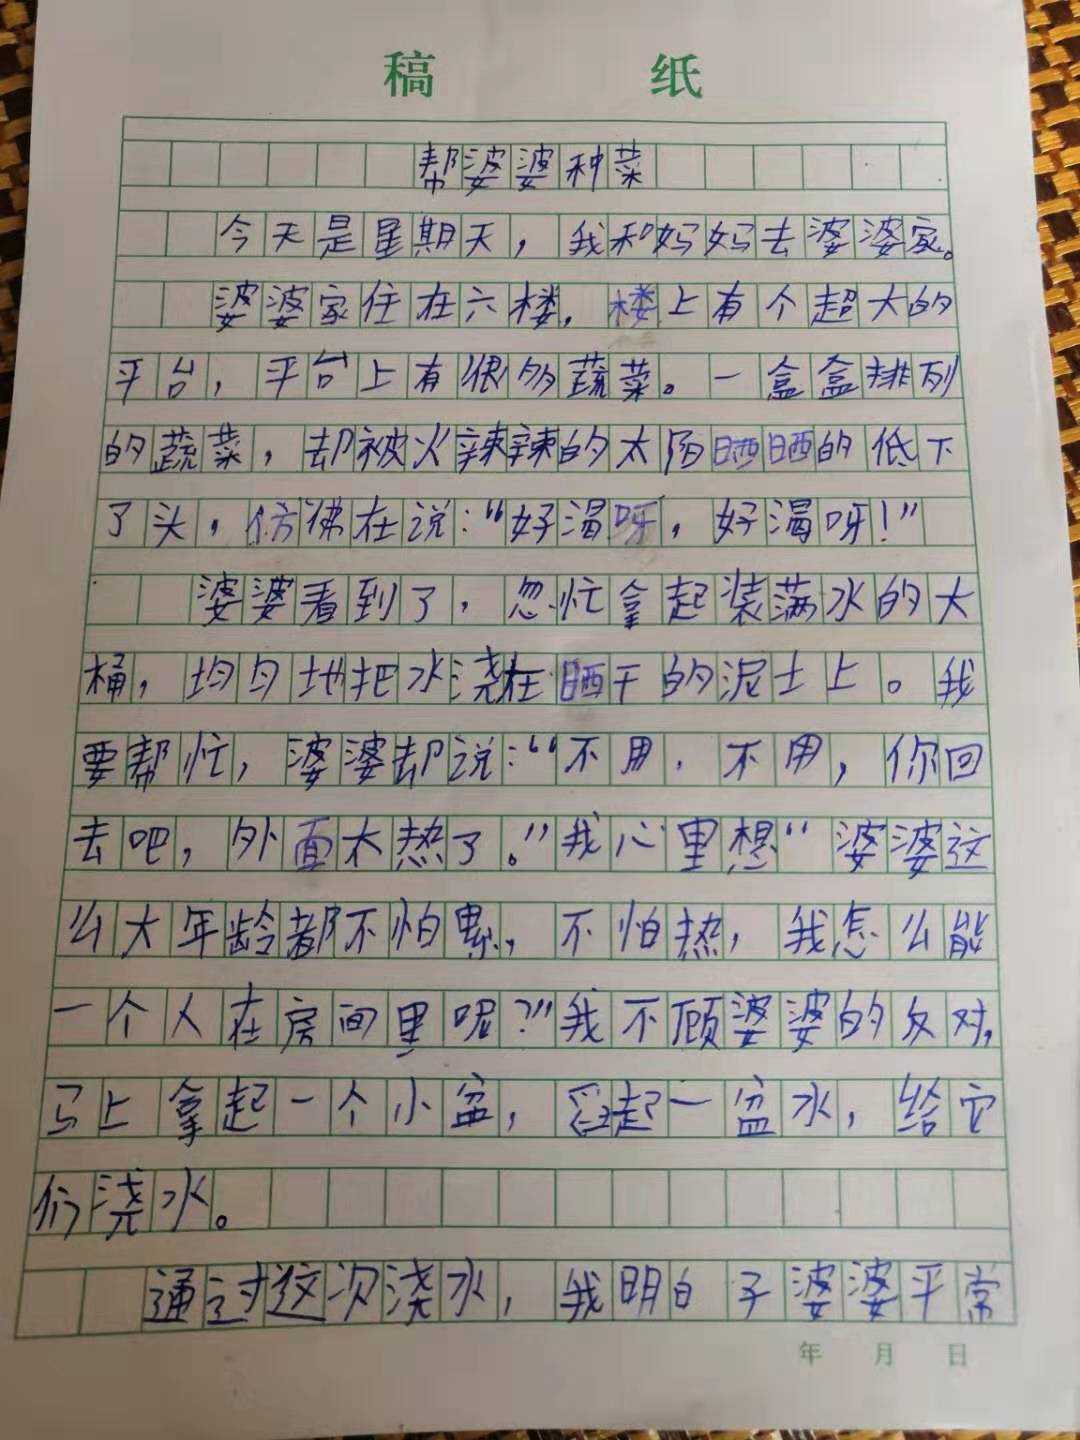 稿 纸
帮婆婆种菜
今天是星期天，我和妈妈去婆婆家。
婆婆家住在六楼，楼上有个超大的
平台，平台上有很多蔬菜。一盒盒排列
的蔬菜，却被火辣辣的太阳晒晒的低下
了头，仿佛在说：“好渴呀，好渴呀！”
婆婆看到了，忽忙拿起装满水的大
桶，均匀地把水浇在晒干的泥土上。我
要帮忙，婆婆却说：“不用．不用，你回
去吧，外面太热了。”我心里想“婆婆这
么大年龄都不怕累，不怕热，我怎么能
一个人在房间里呢？”我不顾婆婆的反对，
马上拿起一个小盆，舀起一盆水，给它
们浇水。
通过这次浇水，我明白了婆婆平常
年 月 日